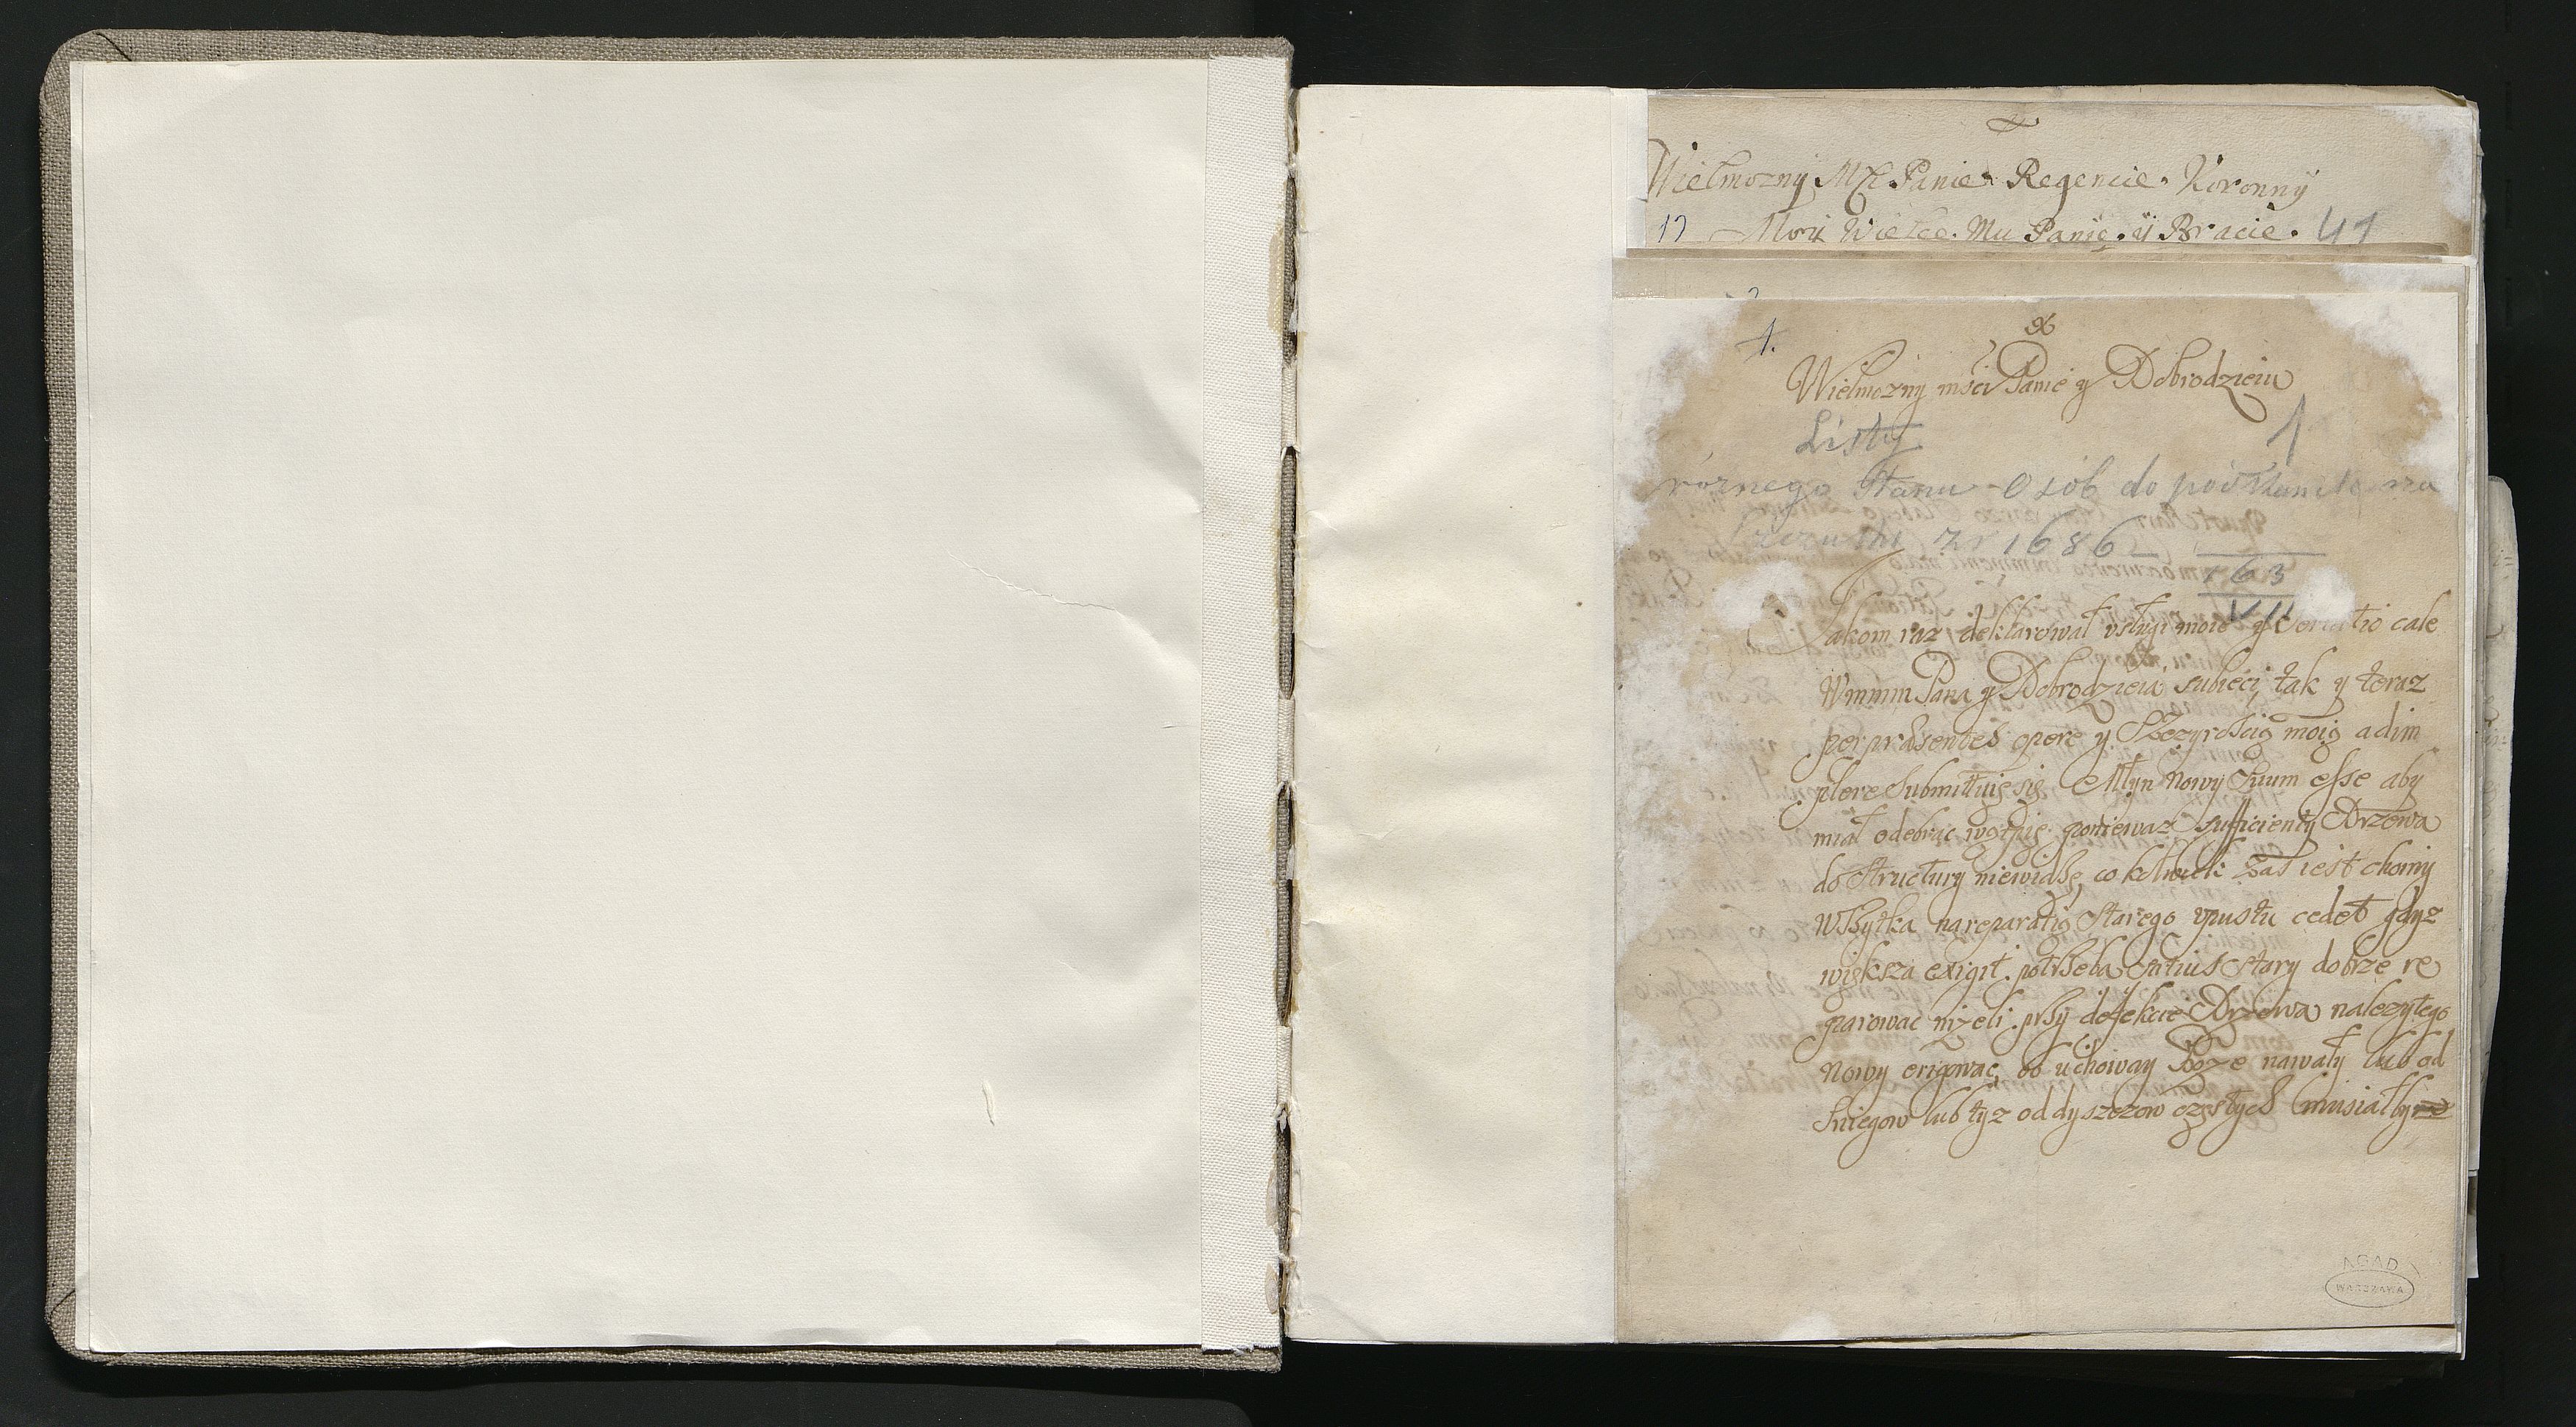 Wielmozny Mć Panie Regencie Koronny
17 Moy Wielce Mu Panie y Bracie. 41
1.
Wielmozny mści Panie y Dobrodzieiu
Listy 1
różnego Stanu Osób do
z r 1686
163
VII
Jakom raz deklarował vsługi moie y cale
Wmmm Pana y Dobrodzieia subieci, tak y teraz
per præsentes opere y Szczyrością moią adim
plere Submittuię się. Młyn Nowy Suum esse aby
miał odebrac wątpię poniewaz sufficienty Drzewa
do Structury niewidzę, co kolwiek zas iest choiny
wszytka na reparatią Starego vpustu cedet gdyz
większa exigit potrzeba citius Stary dobrze re
parowac nizeli przy defekcie Drzewa nalezytego
Nowy erigowac, bo uchoway Boze nawały lub od
Sniegow lub tyz od dyszczow częstych musiałby
AGAD
WARSZAWA